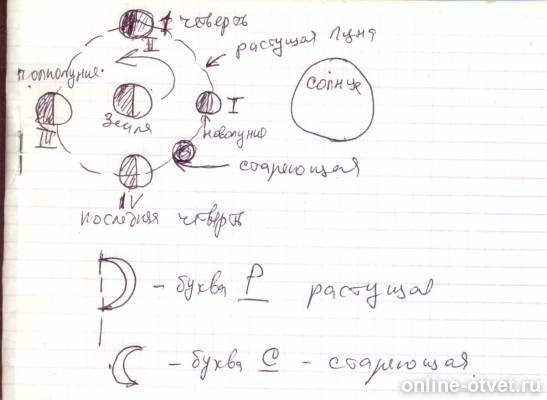 I четверть
II
растущая Луна
полнолуние
Солнце
Земля
I
новолуние
III
стареющая
IV
последняя четверть
- буква Р растущая
- буква С - стареющая
online-otvet.ru